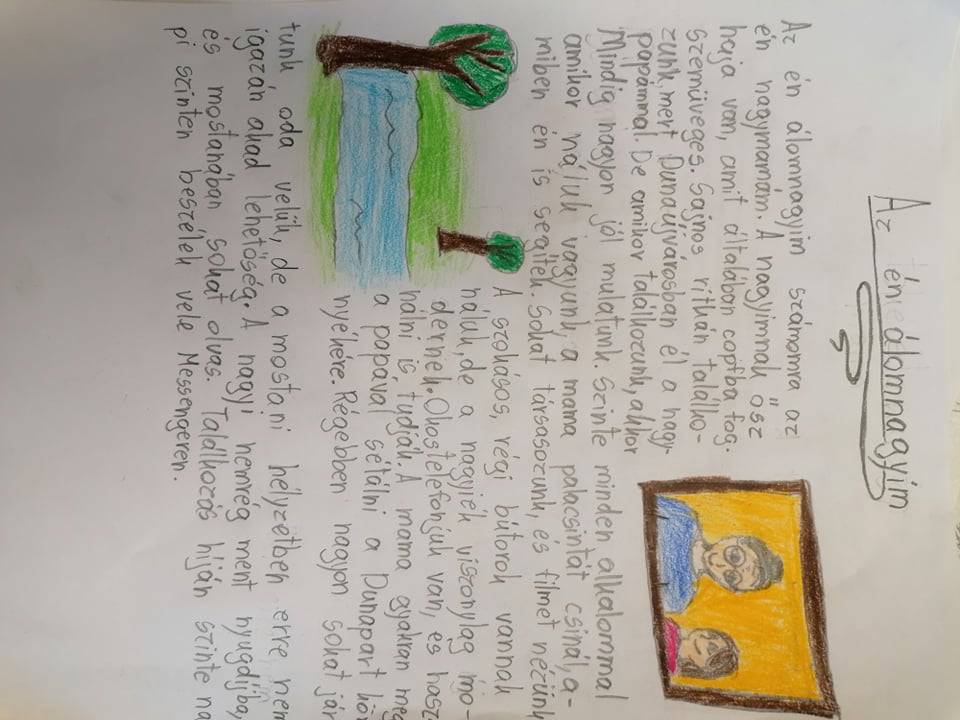 Az én álomnagyim
Az én álomnagyim számomra az
én nagymamám. A nagyimnak ősz
haja van, amit általában copfba fog.
Szemüveges. Sajnos ritkán találko-
zunk, mert Dunaújvárosban él a nagy-
papámmal. De amikor találkozunk, akkor
Mindig nagyon jól mulatunk. Szinte minden alkalommal
amikor náluk vagyunk a mama palacsintát csinál, a-
miben én is segítek. Sokat társasozunk, és filmet nézünk
A szokásos, régi bútorok vannak
náluk, de a nagyiék viszonylag mo-
dernek. Okostelefonjuk van, és hasz
nálni is tudják. A mama gyakran meg
a papával sétálni a Dunapart kör
nyékére. Régebben nagyon sokat jár
tunk oda velük, de a mostani helyzetben erre nem
igazán akad lehetőség. A nagyi nemrég ment nyugdíjba,
és mostanában sokat olvas. Találkozás híján szinte na
pi szinten beszélek vele Messengeren.